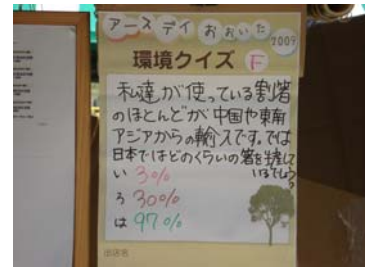 アースデイおおいた 2009
環境クイズ F
私達が使っている割箸
のほとんどが中国や東南
アジアからの輸入です。では
日本ではどのくらいの箸を生産して
いるでしょう?
い 3%
ろ 30%
は 97%
出店名